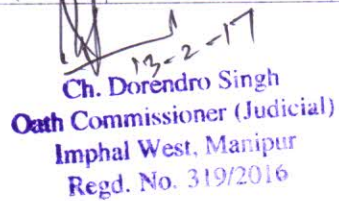 13-2-17
Ch. Dorendro Singh
Oath Commissioner (Judicial)
Imphal West, Manipur
Regd. No. 319/2016